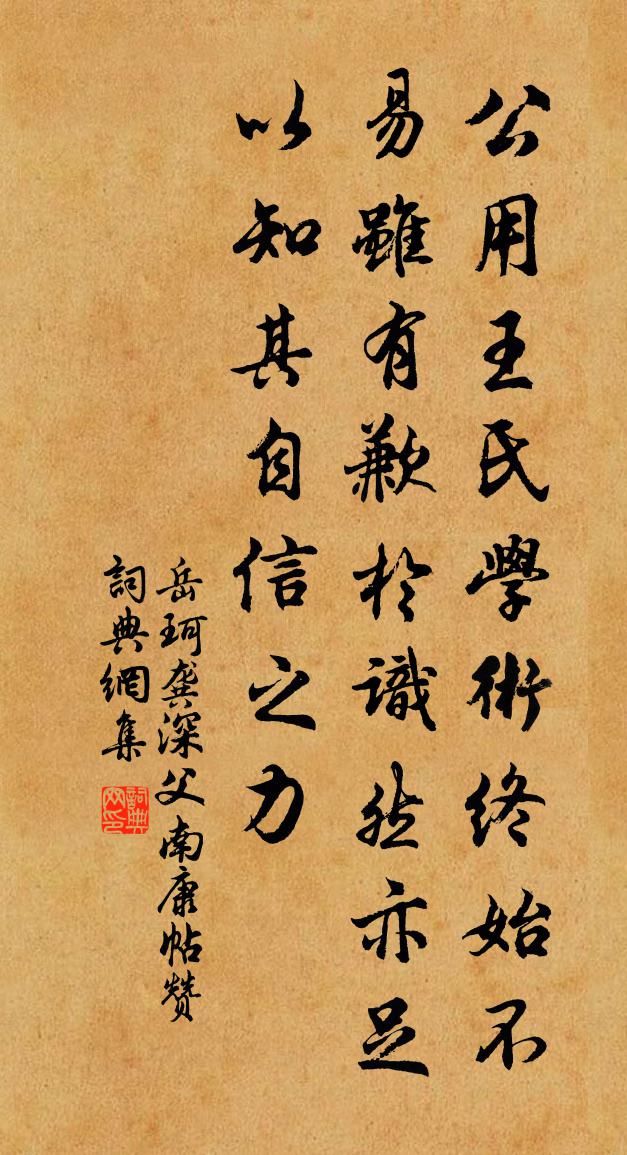 公用王氏學術終始不
易雖有歉於識然亦足
以知其自信之力
岳珂龔深父南康帖贊
詞典網集
詞典
网印